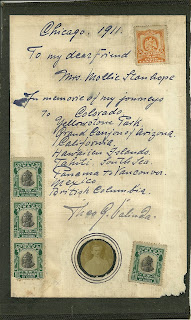 Chicago, 1911.
To my dear friend
Mrs. Mollie Stanhope
In memorie of my journeys
to Colorado
Yellowstone Park
Grand Canjon of Arizona.
California.
Hawaiian Islands.
Tahiti. South Sea.
Panama to Vancouver.
Mexico.
British Columbia.